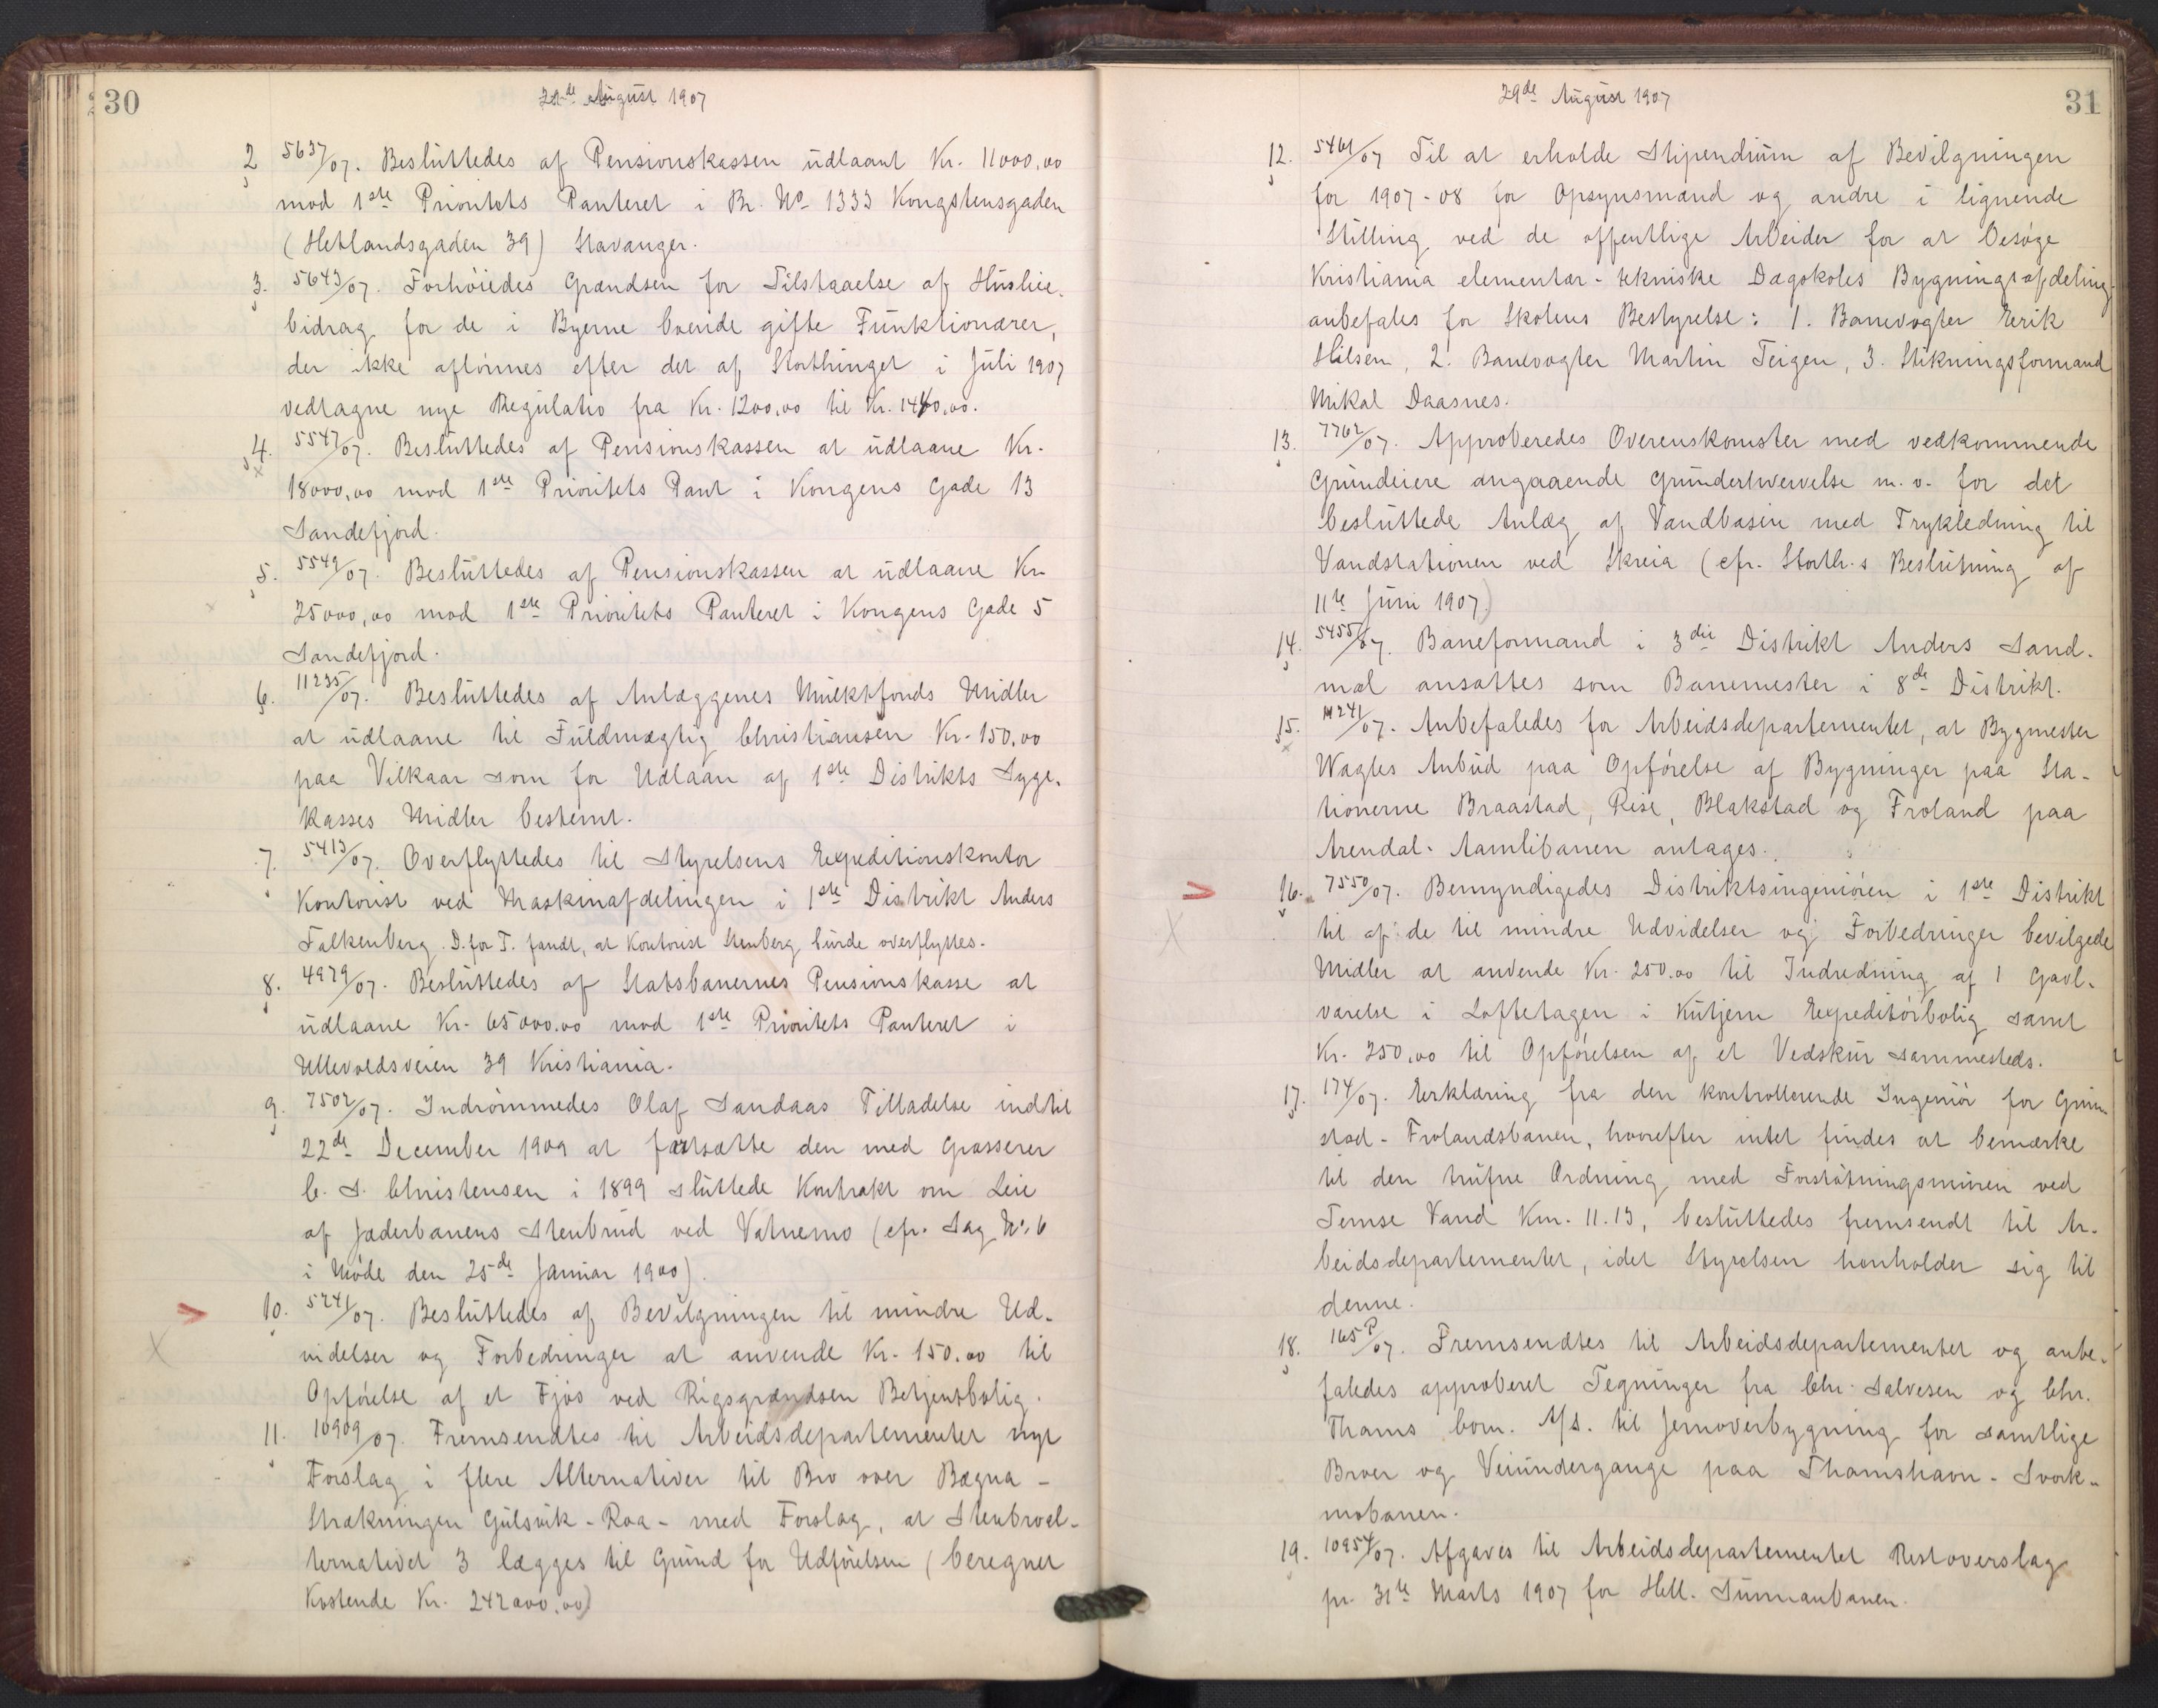 30
22de August 1907
2 5637/07. Besluttedes af Pensionskassen udlaant Kr. 11000,00
mod 1ste Prioritets Panteret i Br. No 1333 Kongstensgaden
(Hetlandsgaden 39) Stavanger.
3. 5643/07. Forhøiedes Grændsen for Tilstaaelse af Husleie-
bidrag for de i Byerne boende gifte Funktionærer,
der ikke aflønnes efter det af Storthinget i Juli 1907
vedtagne nye Regulativ fra Kr. 1200,00 til Kr. 1440,00.
4. 5547/07. Besluttedes af Pensionskassen at udlaane Kr.
18000,00 mod 1ste Prioritets Pant i Kongens Gade 13
Sandefjord.
5. 5549/07. Besluttedes af Pensionskassen at udlaane Kr.
25000,00 mod 1ste Prioritets Panteret i Kongens Gade 5
Sandefjord.
6. 11235/07. Besluttedes af Anlæggenes Mulktfonds Midler
at udlaane til Fuldmægtig Christiansen Kr. 150,00
paa Vilkaar som for Udlaan af 1ste Distrikts Syge-
kasses Midler bestemt.
7. 5413/07. Overflyttedes til Styrelsens Expeditionskontor
Kontorist ved Maskinafdelingen i 1ste Distrikt Anders
Falkenberg. D. for T. fandt, at Kontorist Stenberg burde overflyttes.
8. 4979/07. Besluttedes af Statsbanernes Pensionskasse at
udlaane Kr. 65000.00 mod 1ste Prioritets Panteret i
Ullevoldsveien 39 Kristiania.
9. 7502/07. Indrømmedes Olaf Sandaas Tilladelse indtil
22de December 1909 at fortsætte den med Grosserer
C. S. Christensen i 1899 sluttede Kontrakt om Leie
af Jæderbanens Stenbrud ved Vatnemo (cfr. Sag No. 6
i Møde den 25de Januar 1900).
> 10. 5241/07. Besluttedes af Bevilgningen til mindre Ud-
X videlser og Forbedringer at anvende Kr. 150.00 til
Opførelse af et Fjøs ved Rigsgrændsen Betjentbolig.
11. 10909/07. Fremsendtes til Arbeidsdepartementet nyt
Forslag i flere Alternativer til Bro over Bægna -
Strækningen Gulsvik - Roa - med Forslag, at Stenbroal-
ternativet 3 lægges til Grund for Udførelsen (beregnet
Kostende Kr. 242000.00)
31
29de August 1907
12. 5461/07 Til at erholde Stipendium af Bevilgningen
for 1907-08 for Opsynsmænd og andre i lignende
Stilling ved de offentlige Arbeider for at besøge
Kristiania elementær-tekniske Dagskoles Bygningsafdeling
anbefales for Skolens Bestyrelse: 1. Banevogter Eerik
Stilsen, 2. Banevogter Martin Teigen, 3. Stikningsformand
Mikal Daasnes.
13. 7762/07. Approberedes Overenskomster med vedkommende
Grundeiere angaaende Grunderhvervelse m.v. for det
besluttede Anlæg af Vandbasin med Trykledning til
Vandstationen ved Skreia (cfr. Storth.s Beslutning af
11te Juni 1907)
14. 5455/07. Baneformand i 3die Distrikt Anders Sand-
mæl ansattes som Banemester i 8de Distrikt.
15. 11241/07. Anbefaledes for Arbeidsdepartementet, at Bygmester
Wagles Anbud paa Opførelse af Bygninger paa Sta-
tionerne Braastad, Rise, Blakstad og Froland paa
Arendal-Aamlibanen antages.
> 16. 7550/07. Bemyndigedes Distriktsingeniøren i 1ste Distrikt
X til af de til mindre Udvidelser og Forbedringer bevilgede
Midler at anvende Kr. 250.00 til Indredning af 1 Gavl-
værelse i Loftetagen i Kutjern Expeditørbolig samt
Kr. 250,00 til Opførelsen af et Vedskur sammesteds.
17. 174/07. Erklæring fra den kontrollerende Ingeniør for Grim-
stad-Frolandsbanen, hvorefter intet findes at bemærke
til den trufne Ordning med Forstøtningsmuren ved
Temse Vand Km. 11.13, besluttedes fremsendt til Ar-
beidsdepartementet, idet Styrelsen henholder sig til
denne.
18. 165P/07. Fremsendtes til Arbeidsdepartementet og anbe-
faledes approberet Tegninger fra Chr. Salvesen og Chr.
Thams Com. A/S. til Jernoverbygning for samtlige
Broer og Veiundergange paa Thamshavn-Svork-
mobanen.
19. 10954/07. Afgaves til Arbeidsdepartementet Restoverslag
pr. 31te Marts 1907 for Hell-Sunnanbanen.